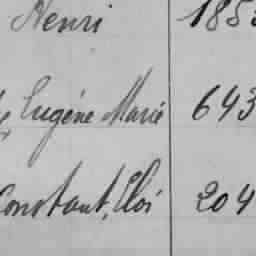 Henri 185
Eugène Marie 643
Constant, Eloi 204